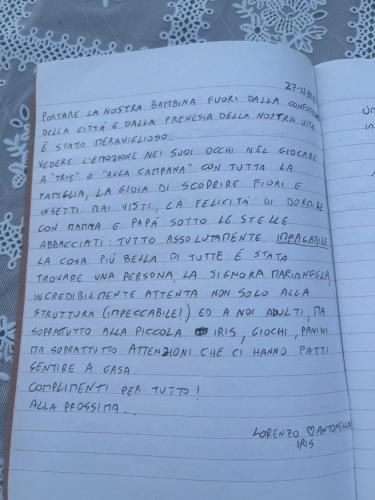 PORTARE LA NOSTRA BAMBINA FUORI DALLA
DELLA CITTÀ E DALLA FRENESIA DELLA NOSTRA VITA
È STATO MERAVIGLIOSO.
VEDERE L'EMOZIONE NEI SUOI OCCHI NEL GIOCARE
A "TRIS" O "ALLA CAMPANA" CON TUTTA LA
FAMIGLIA, LA GIOIA DI SCOPRIRE FIORI E
INSETTI MAI VISTI, LA FELICITÀ DI DORMIRE
CON MAMMA E PAPÀ SOTTO LE STELLE
ABBACCIATI: TUTTO ASSOLUTAMENTE IMPAGABILE
LA COSA PIÙ BELLA DI TUTTE È STATA
TROVARE UNA PERSONA, LA SIGNORA MARIANGELA,
INCREDIBILMENTE ATTENTA NON SOLO ALLA
STRUTTURA (IMPECCABILE!) ED A NOI ADULTI, MA
SOPRATTUTTO ALLA PICCOLA IRIS, GIOCHI, PANINI
MA SOPRATTUTTO ATTENZIONI CHE CI HANNO FATTI
SENTIRE A CASA.
COMPLIMENTI PER TUTTO!
ALLA PROSSIMA...
LORENZO ♡ ANTONELLA
IRIS